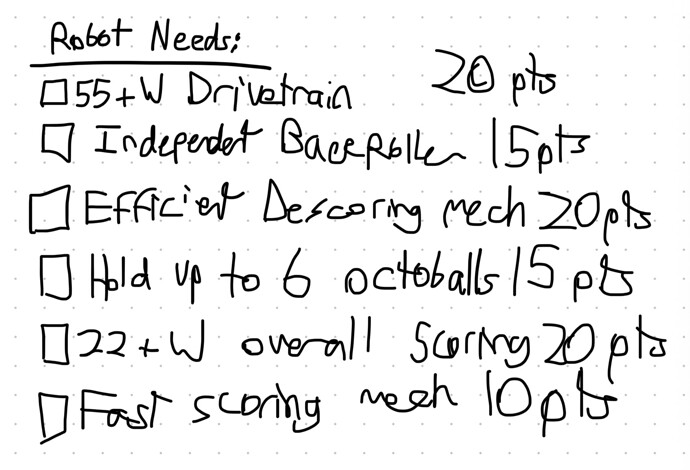 Robot Needs:
55+W Drivetrain 20 pts
Independent BackRoller 15pts
Efficient Descoring mech 20pts
Hold up to 6 octoballs 15 pts
22+W overall Scoring 20 pts
Fast scoring mech 10pts